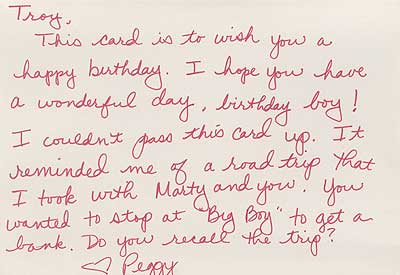 Troy,
This card is to wish you a
happy birthday. I hope you have
a wonderful day, birthday boy!
I couldn't pass this card up. It
reminded me of a road trip that
I took with Marty and you. You
wanted to stop at "Big Boy" to get a
bank. Do you recall the trip?
♡ Peggy